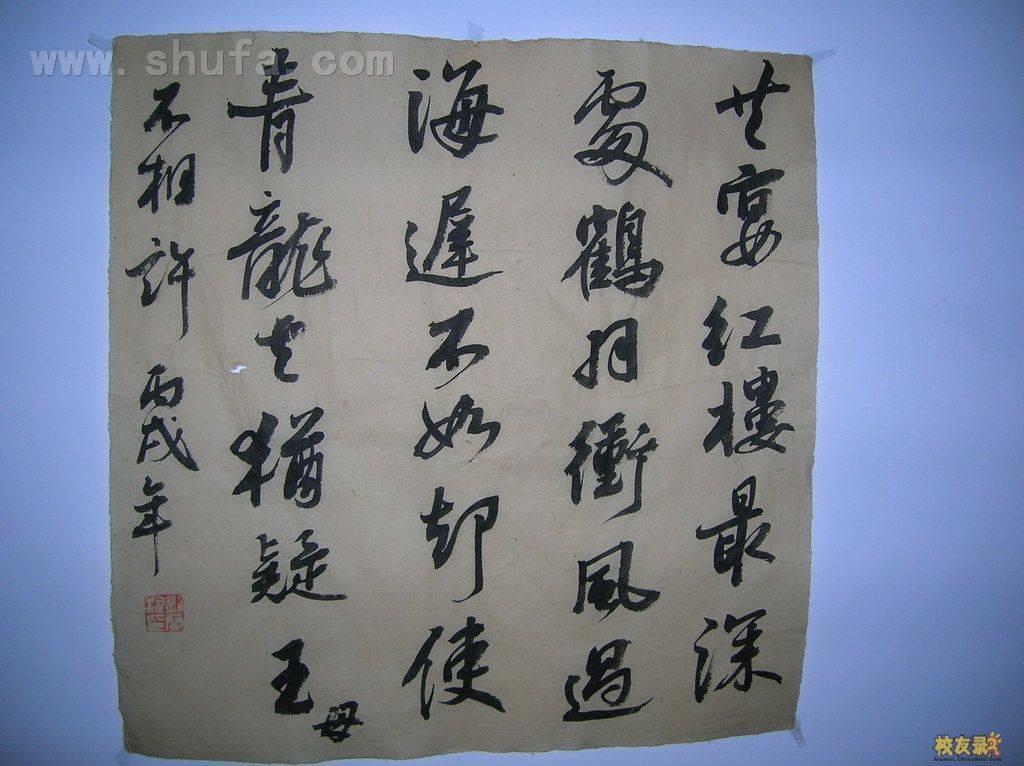 www.shufa.com
共宴红樓最深
處鶴羽衝風過
海遲不如却使
青龍去猶疑王母
不相許 丙戌年
校友录
Alumni.ChinaRen.com